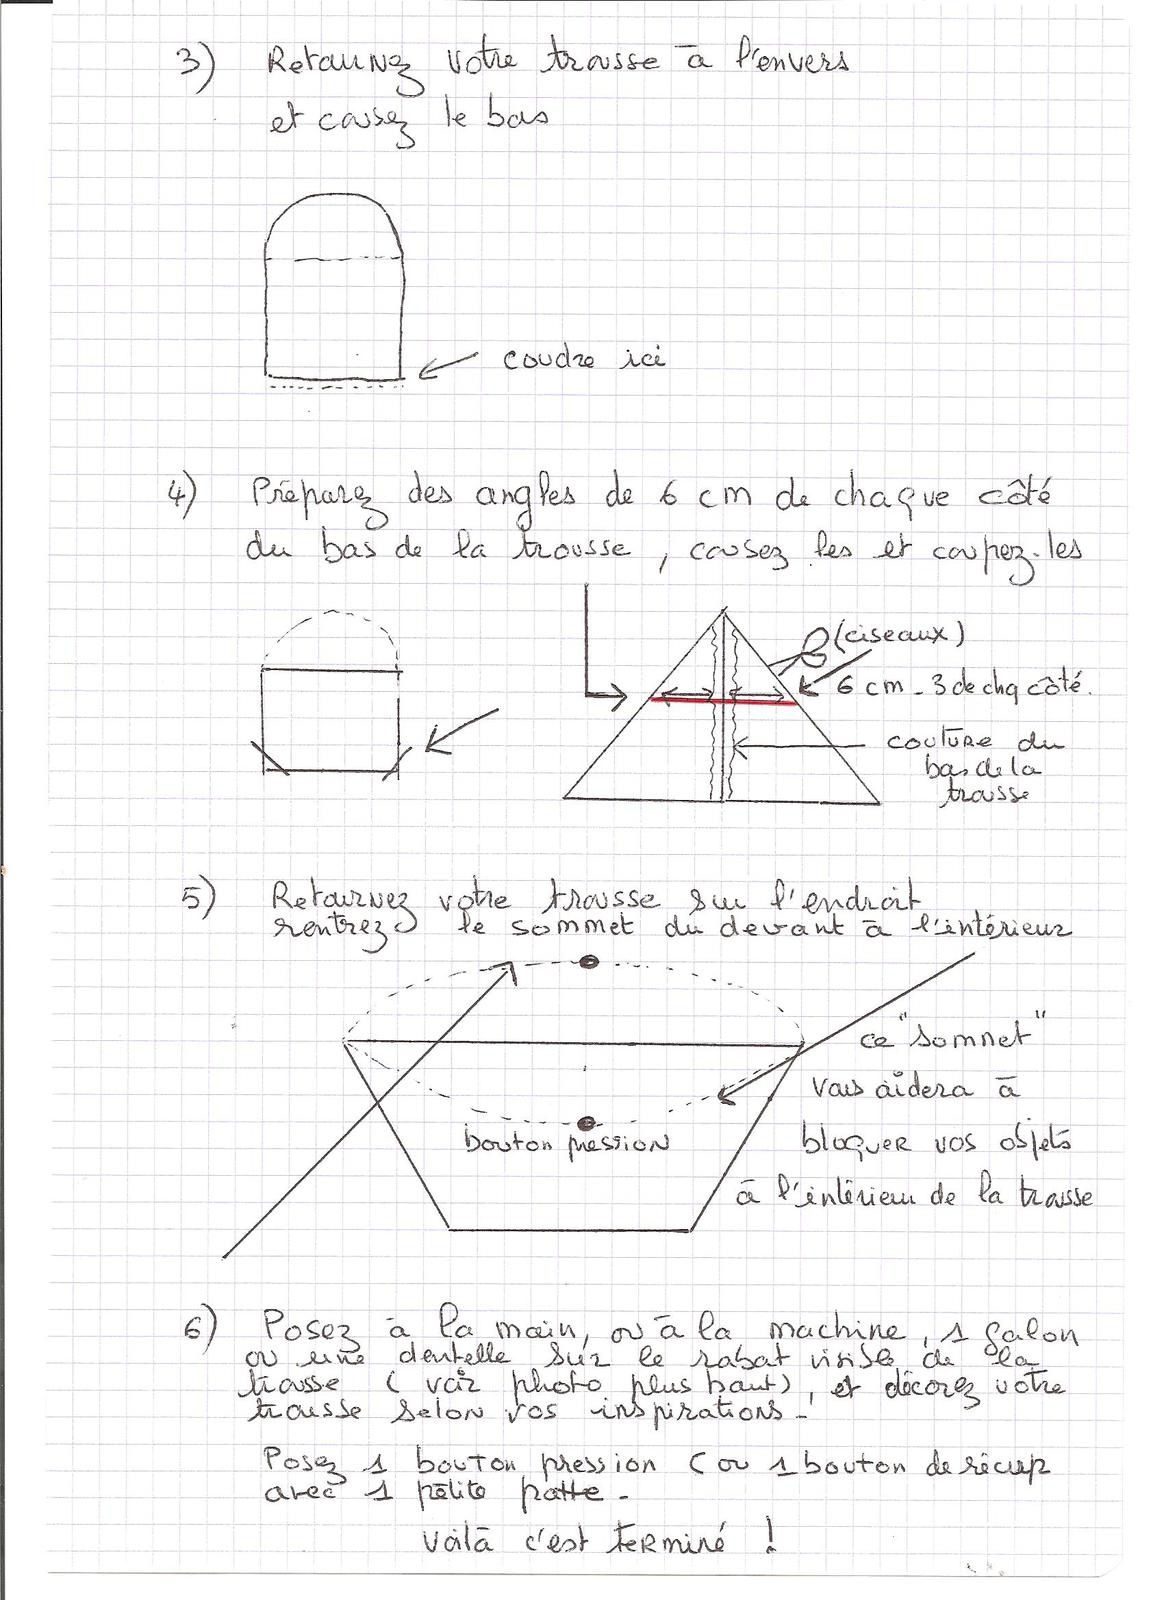 3) Retournez votre trousse à l'envers
et cousez le bas
coudre ici
4) Préparez des angles de 6 cm de chaque côté
du bas de la trousse, cousez les et coupez-les
(ciseaux)
6 cm - 3 de chq côté.
couture du
bas de la
trousse
5) Retournez votre trousse sur l'endroit
rentrez le sommet du devant à l'intérieur
ce "sommet"
vous aidera à
bloquer vos objets
à l'intérieur de la trousse
bouton pression
6) Posez à la main, ou à la machine, 1 galon
ou une dentelle sur le rabat visible de la
trousse (voir photo plus haut), et décorez votre
trousse selon vos inspirations -
Posez 1 bouton pression (ou 1 bouton de récup
avec 1 petite patte -
Voilà c'est terminé !